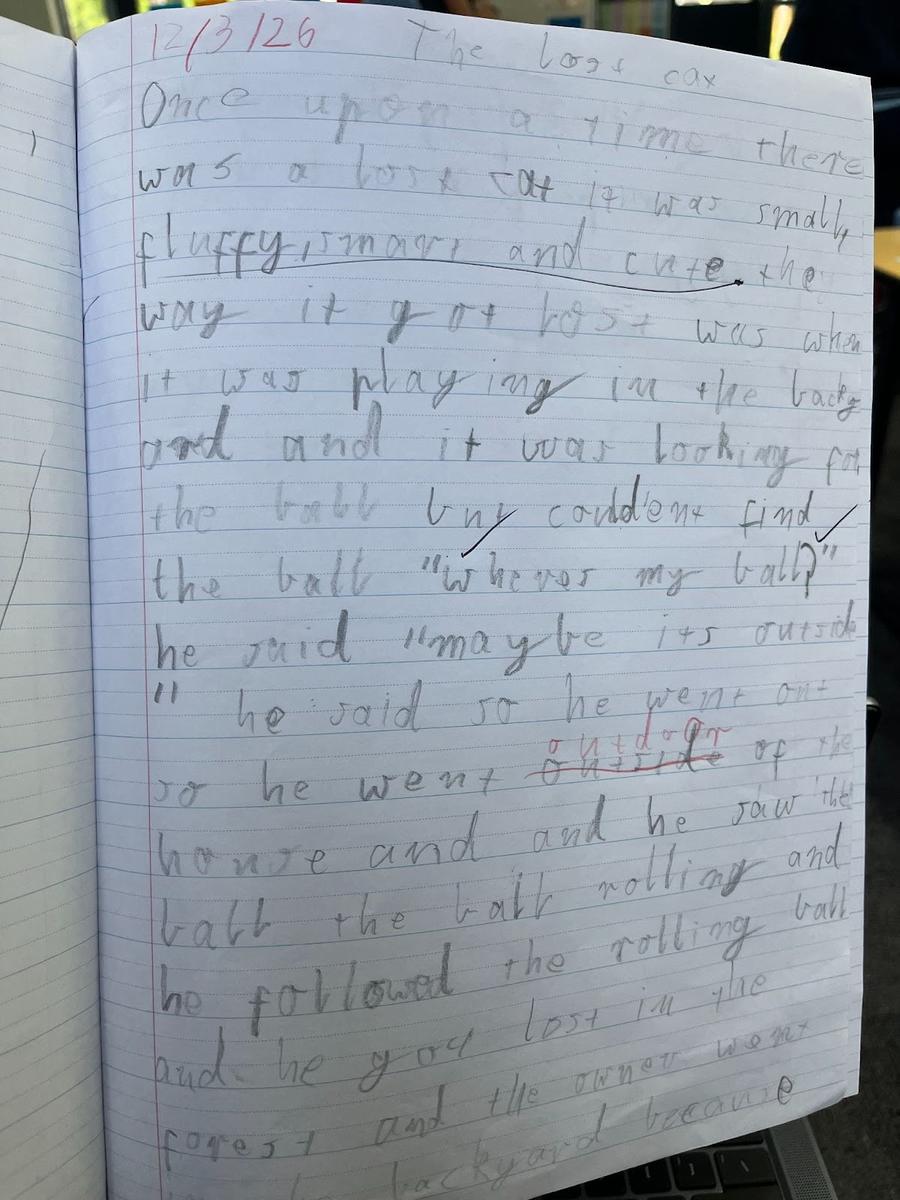 12/3/26 The lost cat
Once upon a time there
was a lost cat it was small,
fluffy, smart and cute. the
way it got lost was when
it was playing in the backy
ard and it was looking for
the ball but couldent find
the ball "wheres my ball?"
he said "maybe its outside
" he said so he went out
so he went outside outdoor of the
house and and he saw the
ball the ball rolling and
he followed the rolling ball
and he got lost in the
forest and the owner went
backyard because